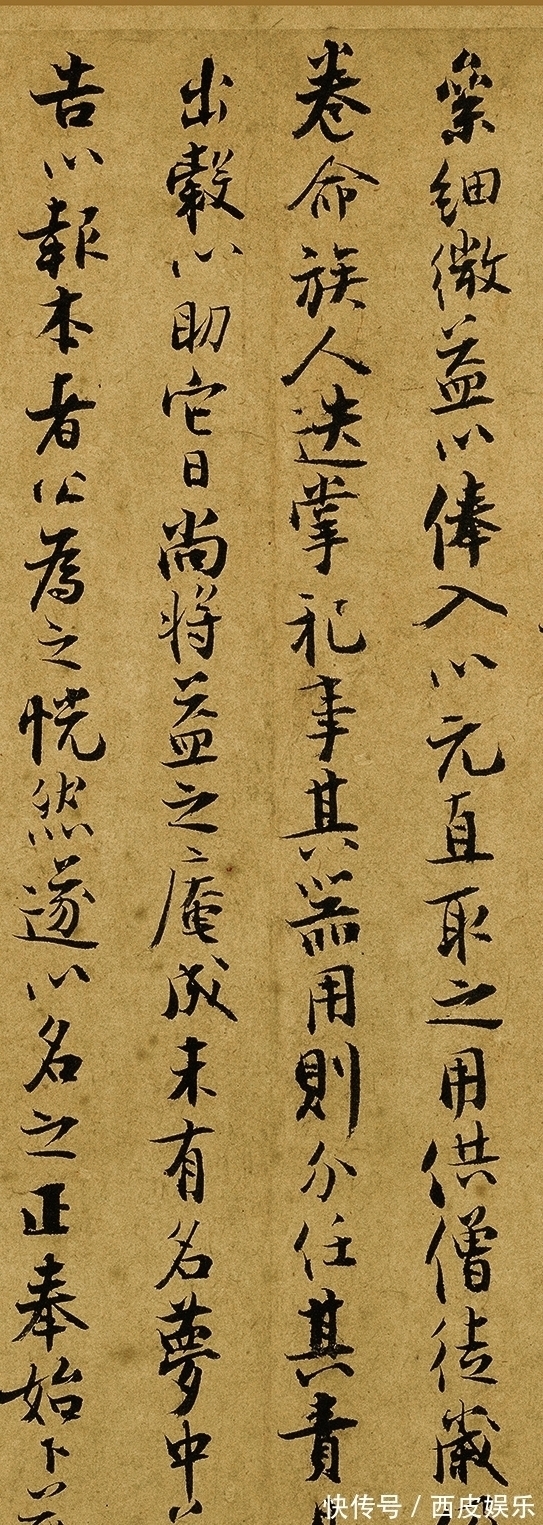 絫細微益以俸入以元直取之用供僧徒歲
卷命族人迭掌祀事其器用則分任其責
出穀以助它日尚将益之庵成未有名夢中
告以報本者公為之恍然遂以名之正奉始卜
快传号 / 西皮娱乐